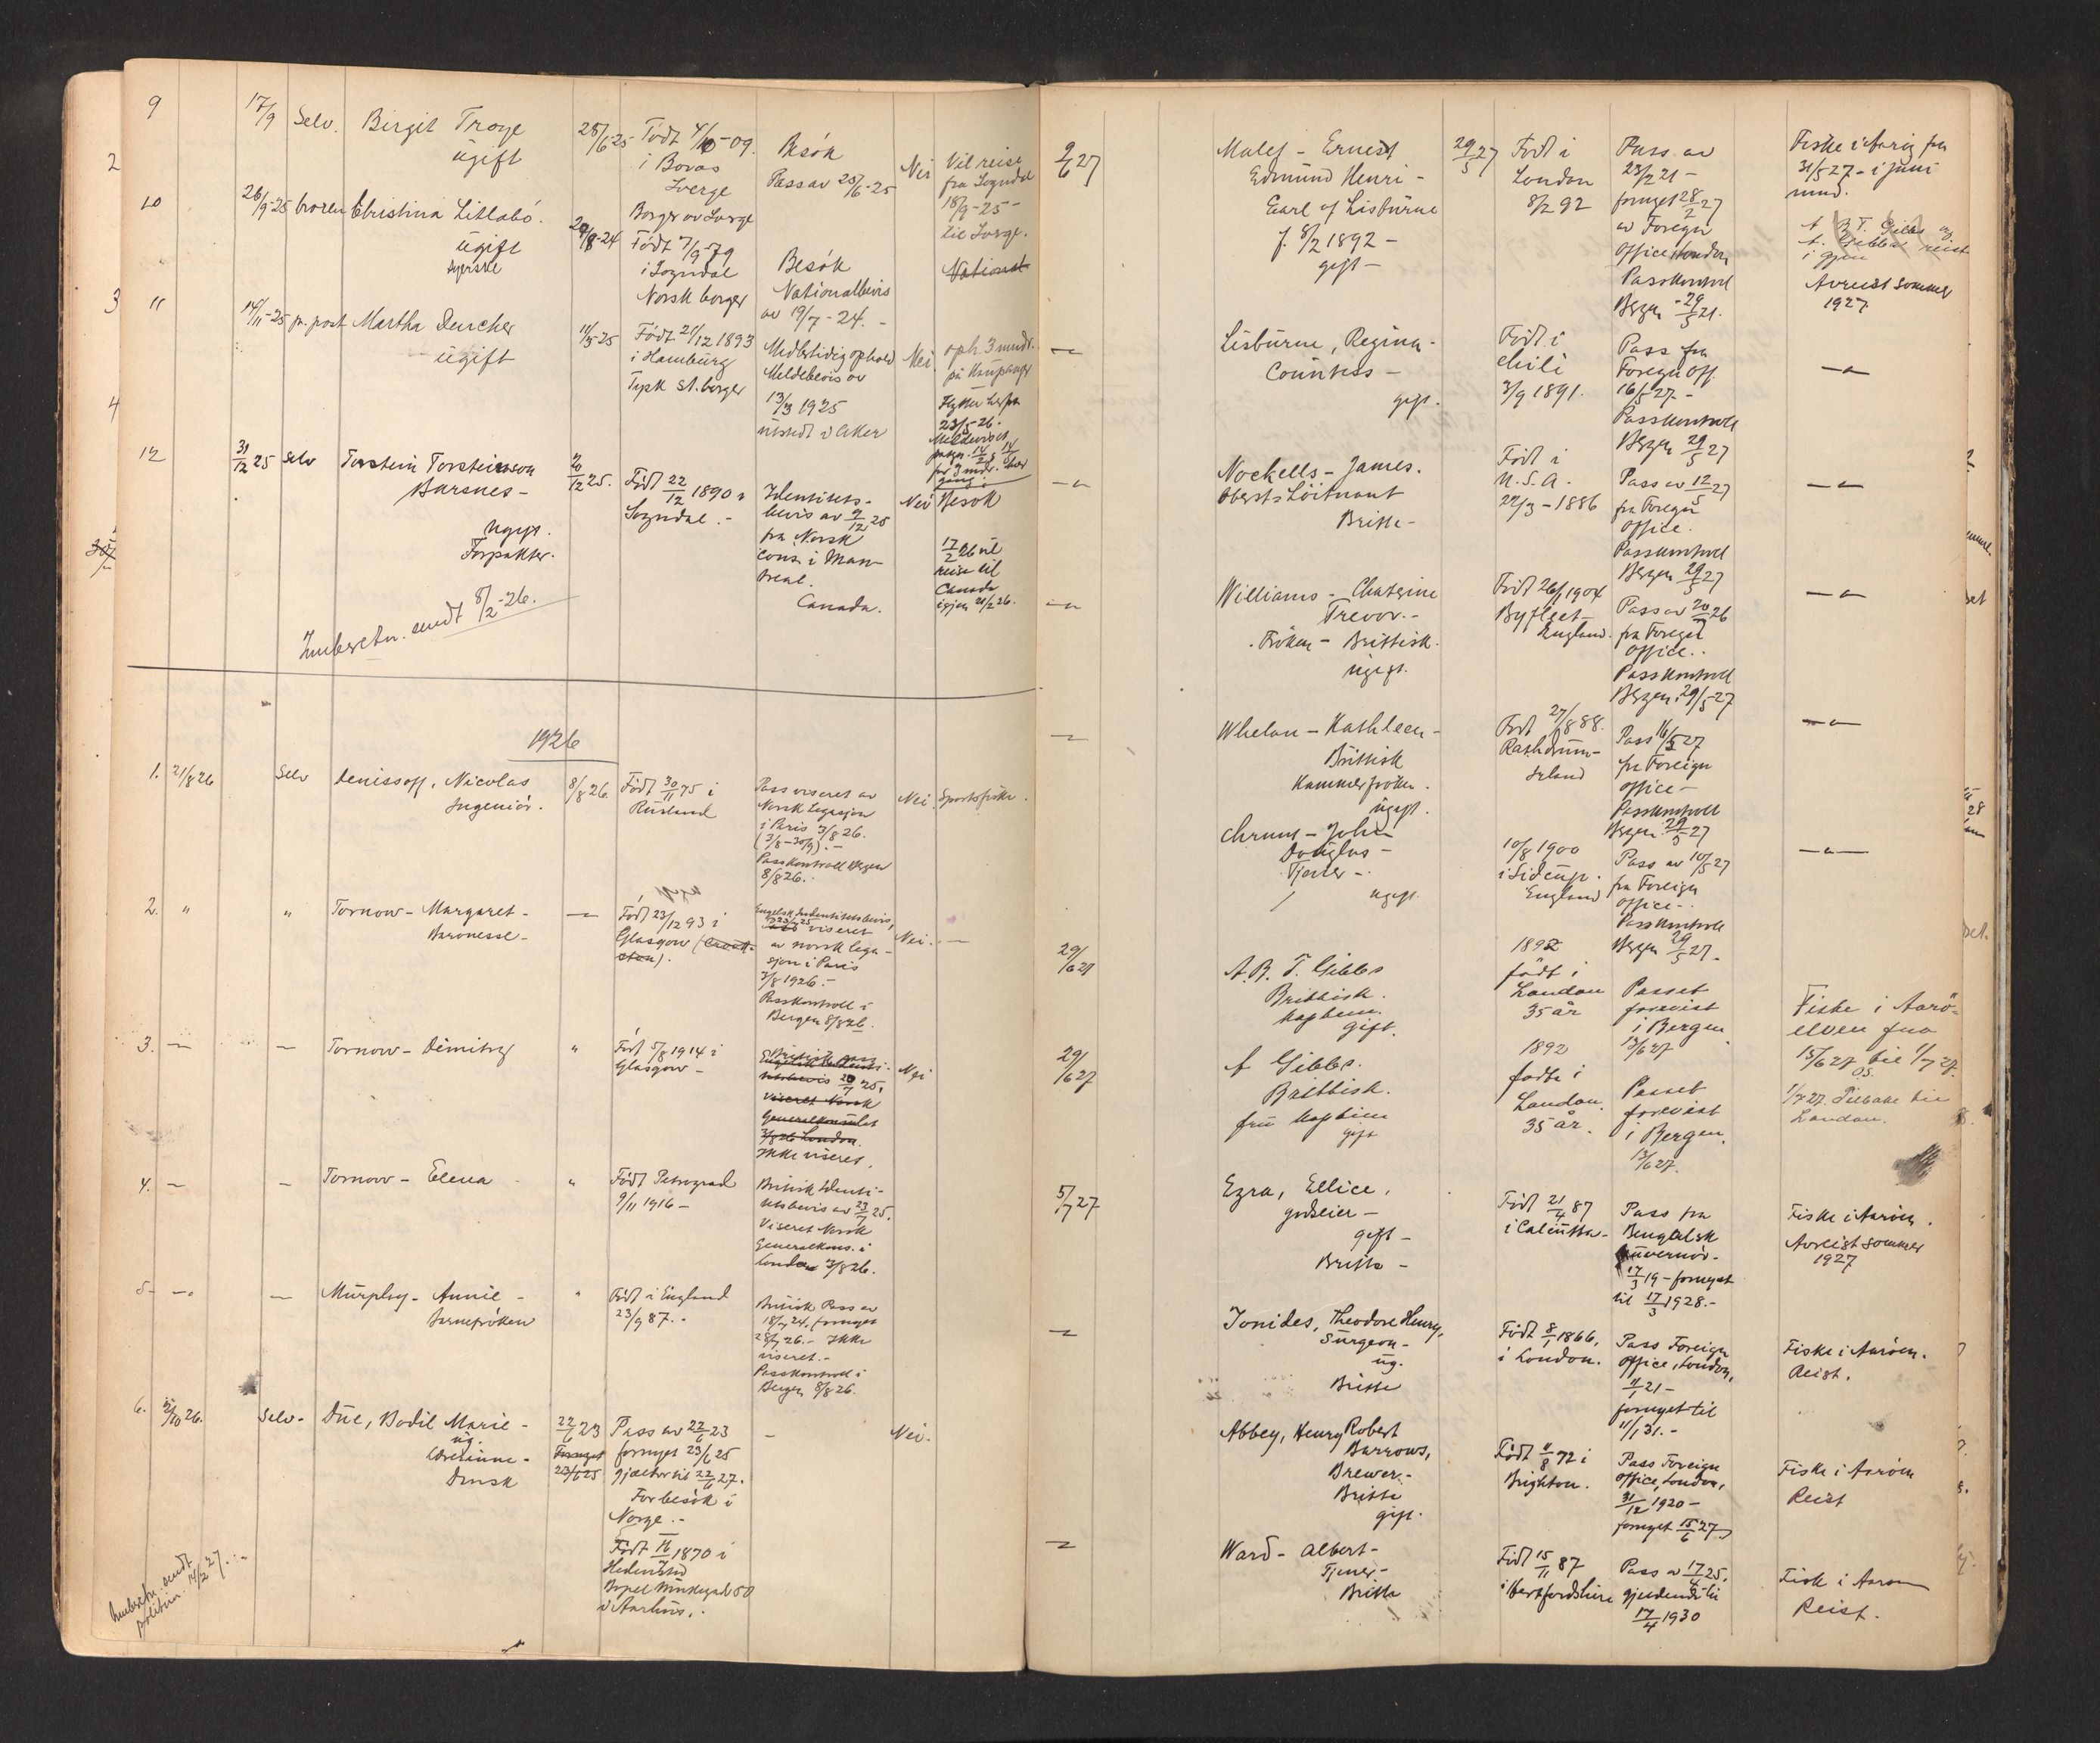 9 17/9 Selv. Birgit Troye 25/6-25 Født 4/10-09. Besök Nei Vil reise
ugift i Borås Pass av 25/6-25 fra Sogndal
Sverge 18/9-25-
Borger av Sverge til Sverge.
10 26/9-25 broren Christina Litlabö. 29/8-24 Født 7/9-79 Besök National
ugift i Sogndal Nationalbevis
syerske Norsk borger av 19/7-24.-
11 14/11-25 pr. post Martha Deucher 11/5-25 Født 21/12 1893 Midlertidig ophold Nei. oph. 3 mndr.
ugift i Hamburg Meldebevis av på Kaupanger
Tysk st.borger 13/3 1925 Flytter herfra
utstedt i Aker 23/5-26.
12 31/12 25 Selv Torstein Torsteinson 20/12 25. Født 22/12 1890 i Identitets- Nei Besök
Barsnes- Sogndal.- bevis av 9/12 25
Ugift. fra Norsk 17/2 26 vil
Forpakter. cons. i Mon- reise til
treal. Canada
Canada. igjen 21/2 26.
Innberetn. sendt 8/2-26.
1926
1. 21/8 26 Selv Denissoff, Nicolas 8/8 26. Født 30/11 75 i Pass viseret av Nei. Sportsfiske.
Ingeniör. Rusland Norsk Legasjon
i Paris 3/8 26.
(3/8-30/9).-
Passkontroll Bergen
8/8 26.
2. " " Tornow- Margaret- — Født 23/12 93 i Engelsk Indentitetsbevis, Nei. —
Baronesse- Glasgow viseret
av norsk lega-
sjon i Paris
3/8 1926.-
Passkontroll i
Bergen 8/8 26.
3. — — Tornow- Dimitry " Født 5/8 1914 i Nei
Glasgow-
20/7 25,
viseret Norsk
Generalkonsulat
3/8 26 London.
Ikke viseret.
4. — — Tornow- Elena " Født Petrograd British Identi-
9/11 1916- tetsbevis av 23/7 25,
Viseret Norsk
Generalkons. i
London 3/8 26.
5- — — Murphy- Annie- " Født i England British Pass av
Barnefröken 23/9 87.- 18/7 24. fornyet
28/7 26.- Ikke
viseret.-
Passkontroll i
Bergen 8/8 26.
6. 5/10 26. Selv- Due, Bodil Marie- 22/6 23 Pass av 22/6 23 — Nei.
ug. Fornyet fornyet 23/6 25
Dansk 23/6 25 gjælder til 22/6 27.
For besök i
Norge.-
Født 1870 i
Hedensted
Bopel Munkegade 50
i Aarhus.
Innberetn. sendt
politim. 14/2 27.-
2/6 27 Malet- Ernest 29/5 27 Født i Pass av Fiske i Aaröy fra
Edmund Henri- London 23/2 21- 31/5 27- i juni
Earl of Lisburne 8/2 92 fornyet 28/2 27 mnd.
f. 8/2 1892- av Foregn
gift- Office, London
Passkontrol Avreist sommer
Bergen -29/5 21. 1927
— Lisburne, Regina- Født i Pass fra —"—
Countess- Chili Foregn Off.
gift. 3/9 1891. 16/5 27.-
Passkontroll
Bergen 29/5 27
—"— Nockells- James. Født i Pass av 12/5 27 —"—
Oberst-Löitnant U.S.A. fra Foregn
Britte- 22/3-1886 Office.
Passkontroll
Bergen 29/5 27
—"— Williams- Chaterine Født 26/1 1904 Pass av 20/7 26 —"—
Trevor.- Byfleet- fra Foregn
Fröken- Brittisk. England. Office..
ugift. Passkontroll
Bergen 29/5-27
— Whelan- Kathleen- Født 27/8 88. Pass 16/5 27 —"—
Brittisk Rathdrum- fra Foreign
Kammerfröken. Irland office-
ugift. Passkontroll
Bergen 29/5 27
Chrum- John 10/8 1900 Pass av 10/5 27 —"—
Douglas- i Sidcup. fra Foreign
Tjener- England office-.
ugift. Passkontroll
Bergen 29/5 27.
29/6 27 A.B. T. Gibbs 1892 Passet Fiske i Aarö-
Brittisk. født i forevist elven fra
kaptein. London i Bergen 15/6 27 til 1/7 27.
gift. 35 år 13/6 27
29/6 27 A Gibbs. 1892 Passet 1/7 27. Tilbake til
Brittisk. födt i forevist London.
fru kaptein London. i Bergen.
gift 35 år. 13/6 27.
5/7 27 Ezra, Ellice, Født 21/4 87 Pass fra Fiske i Aaröen.
godseier- i Calcutta- Bengalsk Avreist sommer
gift- guvernör- 1927
Britte- 17/3 19- fornyet
til 17/3 1928.-
— Ionides, Theodore Henry, Født 8/1 1866, Pass Foreign Fiske i Aaröen.
Surgeon- i London. Office, London, Reist.
ug. 11/1 21-
Britte fornyet til
11/1 31.-
Abbey, Henry Robert Født 11/8 72 i Pass Foreign Fiske i Aaröen
Barrows, Brighton. Office, London, Reist
Brewer- 31/12 1920-
Britte fornyet 15/6 27
gift.
— Ward- Albert- Født 15/11 87 Pass av 17/4 25, Fisk i Aaröen
Tjener- i Hertfordshire gjeldende til Reist.
Britte 17/4 1930